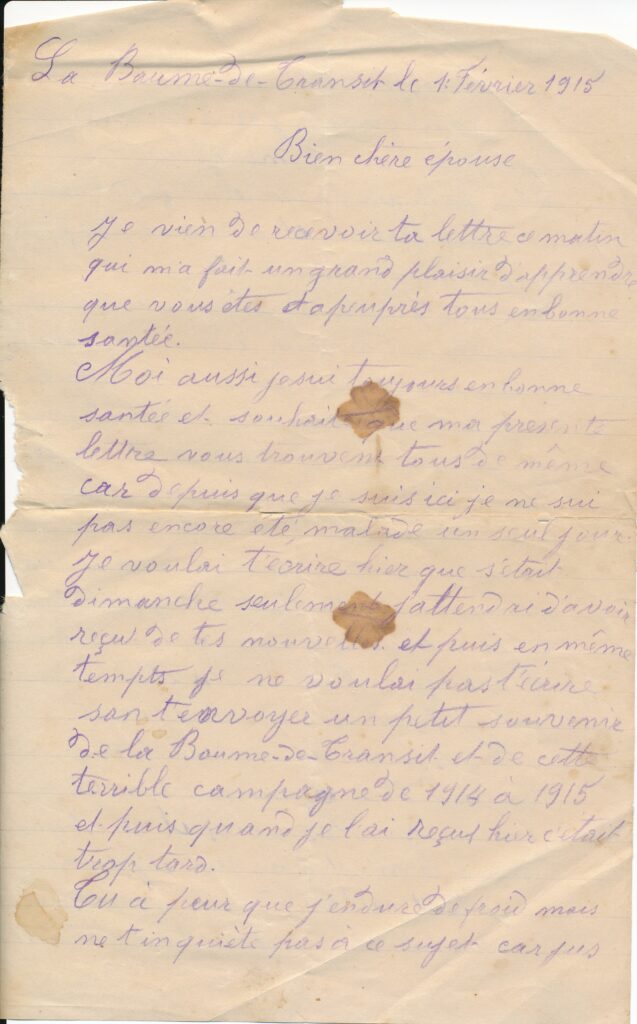 La Baume-de-Transit le 1: Février 1915
Bien chère épouse
Je vien de recevoir ta lettre ce matin
qui m'a fait un grand plaisir d'apprendre
que vous étes et apeuprès tous en bonne
santée.
Moi aussi je sui toujours en bonne
santée et souhaite que ma presente
lettre vous trouvent tous de même
car depuis que je suis ici je ne sui
pas encore eté malade un seul jour.
Je voulai t'écrire hier que s'était
dimanche seulement j'attendrai d'avoir
reçu de tes nouvelles. et puis en même
tempts je ne voulai pas t'écrire
san t'envoyer un petit souvenir
de la Baume-de-Transit et de cette
terrible campagne de 1914 à 1915
et puis quand je l'ai reçut hier c'était
trop tard.
Tu à peur que j'endure de froid mais
ne t'inquiète pas à ce sujet car jus